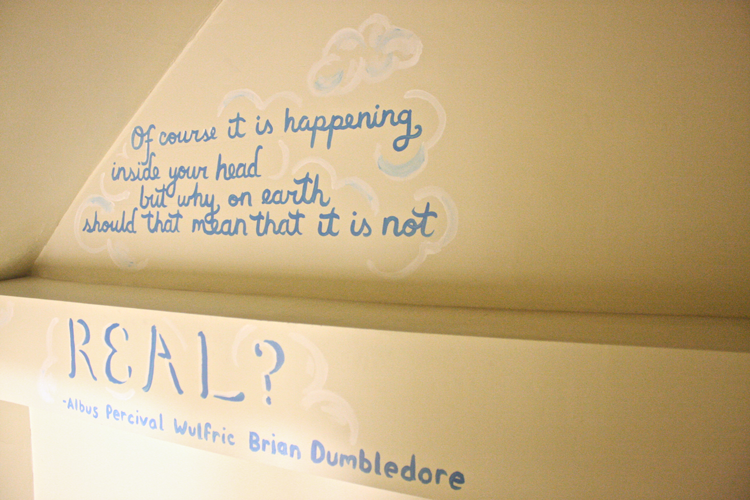 Of course it is happening,
inside your head
but why, on earth
should that mean that it is not
REAL?
-Albus Percival Wulfric Brian Dumbledore